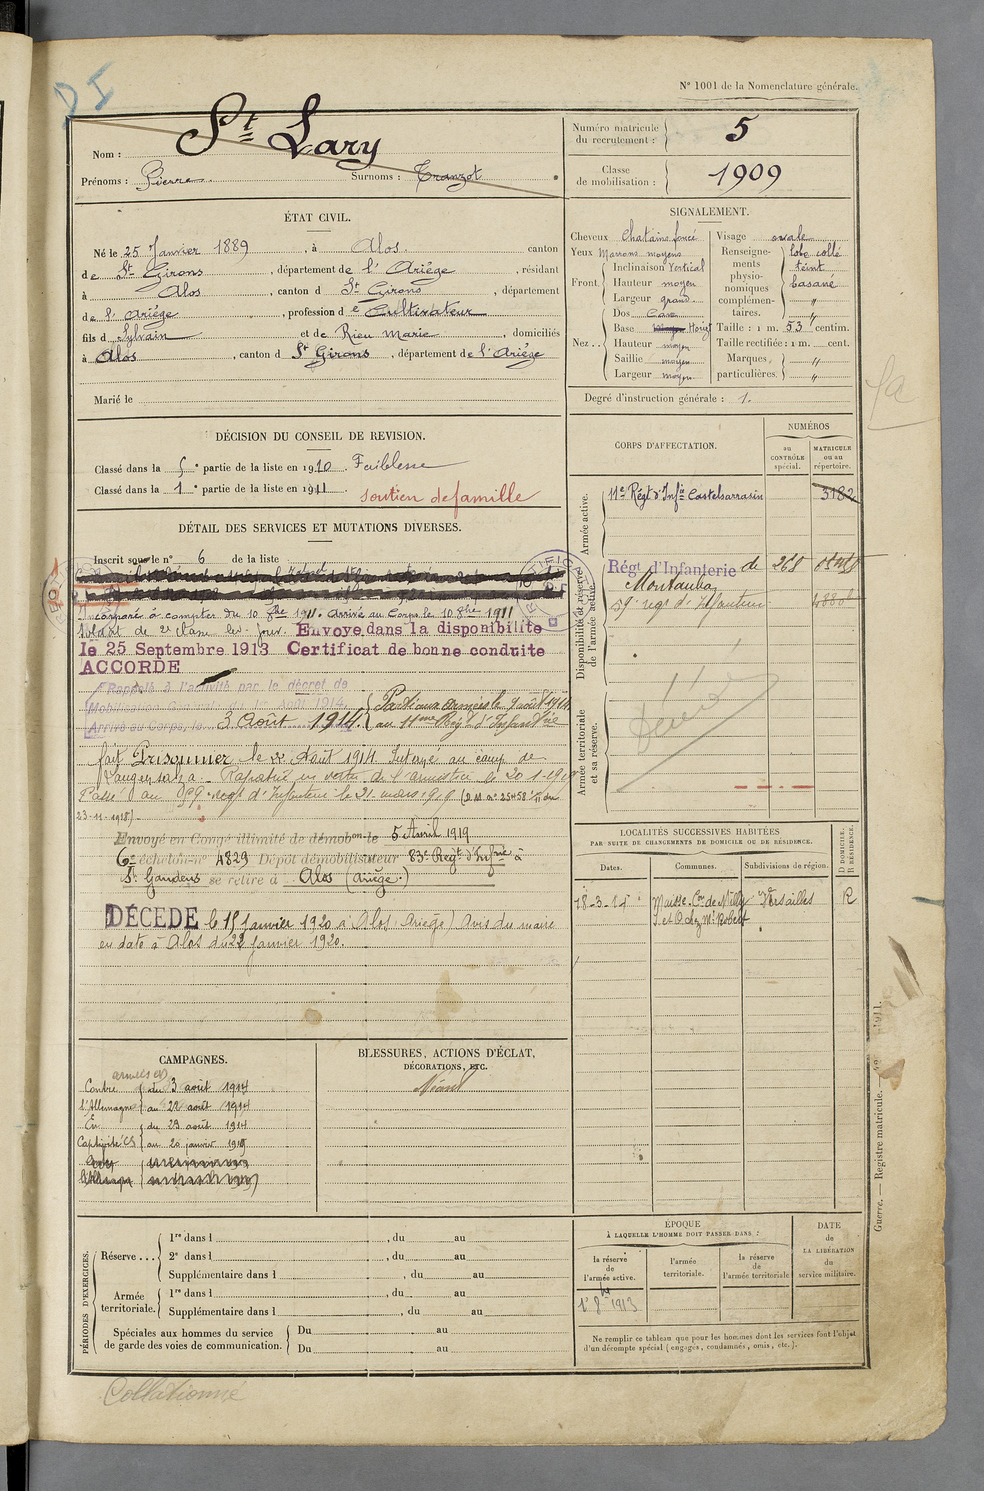 D I
N° 1001 de la Nomenclature générale.
Nom : St Lary
Prénoms : Pierre Surnoms : Tranzot
Numéro matricule du recrutement : 5
Classe de mobilisation : 1909
ÉTAT CIVIL.
Né le 25 Janvier 1889, à Alos canton
de St Girons, département de l'Ariège, résidant
à Alos, canton d St Girons, département
de l'Ariège, profession de Cultivateur
fils d Sylvain et de Rieu Marie, domiciliés
à Alos, canton d St Girons, département de l'Ariège
Marié le
SIGNALEMENT.
Cheveux Chatains foncé
Yeux Marrons moyens
Front. Inclinaison Vertical
Hauteur moyen
Largeur grand
Nez.. Dos Cave
Base Horizt
Hauteur moyen
Saillie moyen
Largeur moyen
Visage ovale
Renseignements physionomiques complémentaires. lobe collé
teint
basané
"
Taille : 1 m. 53 centim.
Taille rectifiée : 1 m. cent.
Marques particulières. "
"
Degré d'instruction générale : 1.
DÉCISION DU CONSEIL DE REVISION.
Classé dans la 5e partie de la liste en 1910. Faiblesse
Classé dans la 1e partie de la liste en 1911. soutien de famille
DÉTAIL DES SERVICES ET MUTATIONS DIVERSES.
Inscrit sous le n° 6 de la liste
Incorporé à compter du 10 8bre 1911. Arrivé au Corps le 10 8bre 1911
Soldat de 2e classe led. jour. Envoye dans la disponibilite
le 25 Septembre 1913 Certificat de bonne conduite
ACCORDE
Rappelé à l'activité par le décret de
Mobilisation Générale du 1er Août 1914.
Arrivé au Corps, le 3 Août 1914.
Parti aux armées le 7 août 1914
au 11me Régt d'Infanterie
fait Prisonnier le 22 Août 1914 Interné au camp de
Langensalza. Rapatrié en vertu de l'armistice le 20-1-1919
Passé au 59e regt d'Infanterie le 21 mars 1919 (D.M. n° 25458 du
23-11-1918)
Envoyé en Congé illimité de démobon le 5 Avril 1919
6e échelon n° 4829 Dépôt démobilisateur 83e Régt d'Infrie à
St Gaudens se retire à Alos (Ariège)
DÉCÉDÉ le 15 Janvier 1920 à Alos (Ariège) Avis du maire
en date à Alos du 22 Janvier 1920.
CORPS D'AFFECTATION.
NUMÉROS
au CONTRÔLE spécial.
MATRICULE ou au répertoire.
Armée active.
11e Régt d'Infie Castelsarrasin 3182
Disponibilité et réserve de l'armée active.
Régt d'Infanterie de 268
Montauban
59e regt d'Infanterie
Armée territoriale et sa réserve.
LOCALITÉS SUCCESSIVES HABITÉES
PAR SUITE DE CHANGEMENTS DE DOMICILE OU DE RÉSIDENCE.
Dates. Communes. Subdivisions de région. D DOMICILE. R RÉSIDENCE.
18-3-14 Maisse Con de Milly Versailles R
S. et O. chez Mr Robert
CAMPAGNES.
Contre du 3 août 1914
l'Allemagne au 22 août 1914
En du 23 août 1914
Captivité au 20 janvier 1919
BLESSURES, ACTIONS D'ÉCLAT,
DÉCORATIONS, ETC.
Néant
PÉRIODES D'EXERCICES.
Réserve... 1re dans l , du au
2e dans l , du au
Supplémentaire dans l , du au
Armée territoriale. 1re dans l , du au
Supplémentaire dans l , du au
Spéciales aux hommes du service de garde des voies de communication. Du au
Du au
ÉPOQUE
À LAQUELLE L'HOMME DOIT PASSER DANS :
la réserve de l'armée active.
l'armée territoriale.
la réserve de l'armée territoriale
DATE de LA LIBÉRATION du service militaire.
1er 8bre 1913
Ne remplir ce tableau que pour les hommes dont les services font l'objet
d'un décompte spécial (engagés, condamnés, omis, etc.).
Guerre. — Registre matricule. — 1911.
Collationné